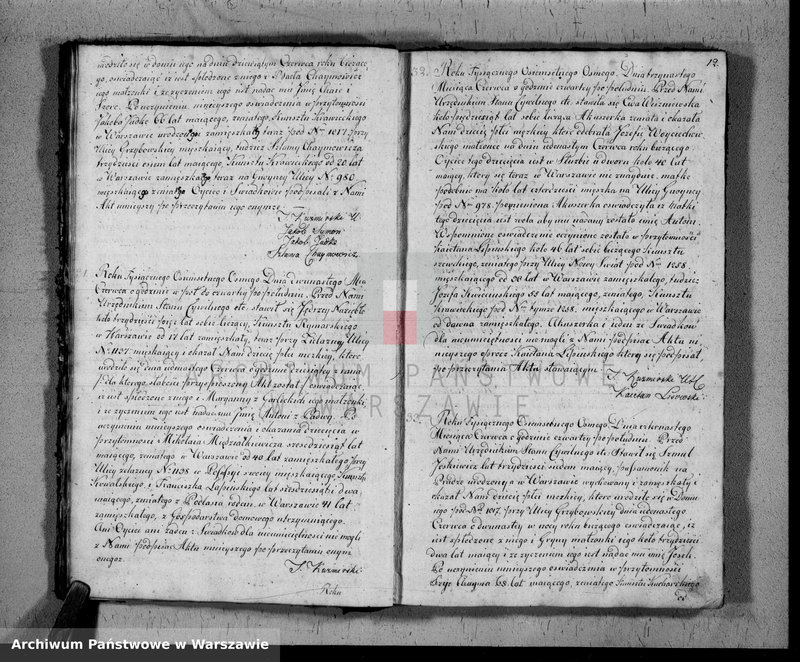 urodziło się w domu iego na dniu dziewiątym Czerwca roku bieżące-
go, oświadczaiąc iż iest spłodzone z niego i Baela Chaymowicz
iego małżonki i że życzeniem iego iest nadać mu Imię
Po uczynieniu ninieyszego oświadczenia w przytomności
Jakóba Judke 66 lat maiącego, Kunsztu Krawieckiego
w Warszawie zamieszkały teraz pod Nrem 1017 przy
Ulicy Grzybowskiey mieszkaiący, tudzież Szlamy Chaymowicza
trzydzieści osiem lat maiącego, Kunsztu Krawieckiego od 20 lat
w Warszawie teraz na Gnoyney Ulicy Nro 980
Oyciec i Świadkowie podpisali z Nami
Akt ninieyszy po przeczytaniu iego
T. Kuzmirski U.
Jakob Symon
Jakob Judka
Szlama Chaymowicz
Roku Tysiącznego Ośmsetnego Ósmego Dnia dwunastego Mca
Czerwca o godzinie w poł do czwartey po południu. Przed Nami
Urzędnikiem Stanu Cywilnego etc. stawił się Jędrzey
koło trzydzieści pięć lat sobie liczący, Kunsztu Rymarskiego
w Warszawie od 17 lat zamięszkały, teraz przy Żelazney Ulicy
Nro 1137 mięszkaiący i okazał Nam dziecię płci męzkiey, które
urodziło się dnia iedenastego Czerwca o godzinie dziesiątey z rana
Dla którego słabości przyspieszony Akt został oświadczaiąc
iż iest spłodzone z niego i Maryanny z Garlickich iego małżonki
i że życzeniem iego iest nadać mu Imię Antoni z Padwy. Po
uczynieniu ninieyszego oświadczenia i okazania dziecięcia w
przytomności Mikołaia Międzalkiewicza sześćdziesiąt lat
maiącego, żonatego w Warszawie od 40 lat zamięszkałego przy
Ulicy żelazney Nro 1138 w Possessyi swoiey mięszkaiącego,
Kowalskiego, i Franciszka Łapińskiego lat sześćdziesiąt dwa
maiącego, żonatego z Podlasia rodem, w Warszawie 41 lat
zamięszkałego, z Gospodarstwa domowego utrzymuiącego.
Ani Oyciec ani żaden z Świadków dla nieumieiętności nie mogli
z Nami podpisać Aktu ninieyszego po przeczytaniu onym
onegoż.
T. Kuzmirski
Roku
12.
32. Roku Tysiącznego Ośmsetnego Osmego. Dnia trzynastego
Miesiąca Czerwca o godzinie czwartey po południu. Przed Nami
Urzędnikiem Stanu Cywilnego etc. stawiła się Ewa Wiszniewska
koło pięćdziesiąt lat sobie licząca Akuszerka żonata i okazała
Nam dziecię płci męzkiey które odebrała Józefie Woyciechow-
skiego małżonce na dniu iedenastym Czerwca roku bieżącego
Oyciec tego dziecięcia iest w Służbie u dworu koło 40 lat
maiący, który się teraz w Warszawie nie znayduie, matka
podobnie ma koło lat czterdzieści mięszka na Ulicy Gnoyney
pod Nro 978. Pomieniona Akuszerka oświadczyła iż matki
tego dziecięcia iest wola aby mu nadany zostało imię Antoni.
Wspomnione oświadczenie uczynione zostało w przytomności
Kaietana Lipińskiego koło 46 lat sobie liczącego Kunsztu
szewskiego, żonatego przy Ulicy Nowy Świat pod Nro 1258
mięszkaiącego od 30 lat w Warszawie zamięszkałego, tudzież
Józefa 55 lat maiącego, żonatego, Kunsztu
Krawieckiego pod Nro tymże 1258. mięszkaiącego w Warszawie
od dawna zamięszkałego. Akuszerka i ieden ze Świadków
dla nieumieiętności nie mogli z Nami podpisać Aktu ni-
nieyszego oprócz Kaietana Lipińskiego który się podpisał
po przeczytaniu Aktu stawaiącym
T. Kuzmirski
Kaietan
33. Roku Tysiącznego Osmsetnego Osmego. Dnia czternastego
Miesiąca Czerwca o godzinie czwartey po południu. Przed
Nami Urzędnikiem Stanu Cywilnego etc. Stawił się Szmul
Joskiewicz lat trzydzieści siedem maiący,
Pradze urodzony a w Warszawie wychowany i zamięszkały i
okazał Nam dziecię płci męzkiey, które urodziło się w Domu
iego pod Nro 1017. przy Ulicy Grzybowskiey dnia iedenastego
Czerwca o dwunastey w nocy roku bieżącego oświadczaiąc, iż
iest spłodzone z niego i Gryny małżonki iego koło trzydzieści
dwa lat maiącey i że życzeniem iego iest nadać mu imię Josek.
Po uczynieniu ninieyszego oświadczenia w przytomności
Chayma 58. lat maiącego, żonatego Kunsztu Kucharskiego
Archiwum Państwowe w Warszawie
ARCHIWUM PAŃSTWOWE
W WARSZAWIE